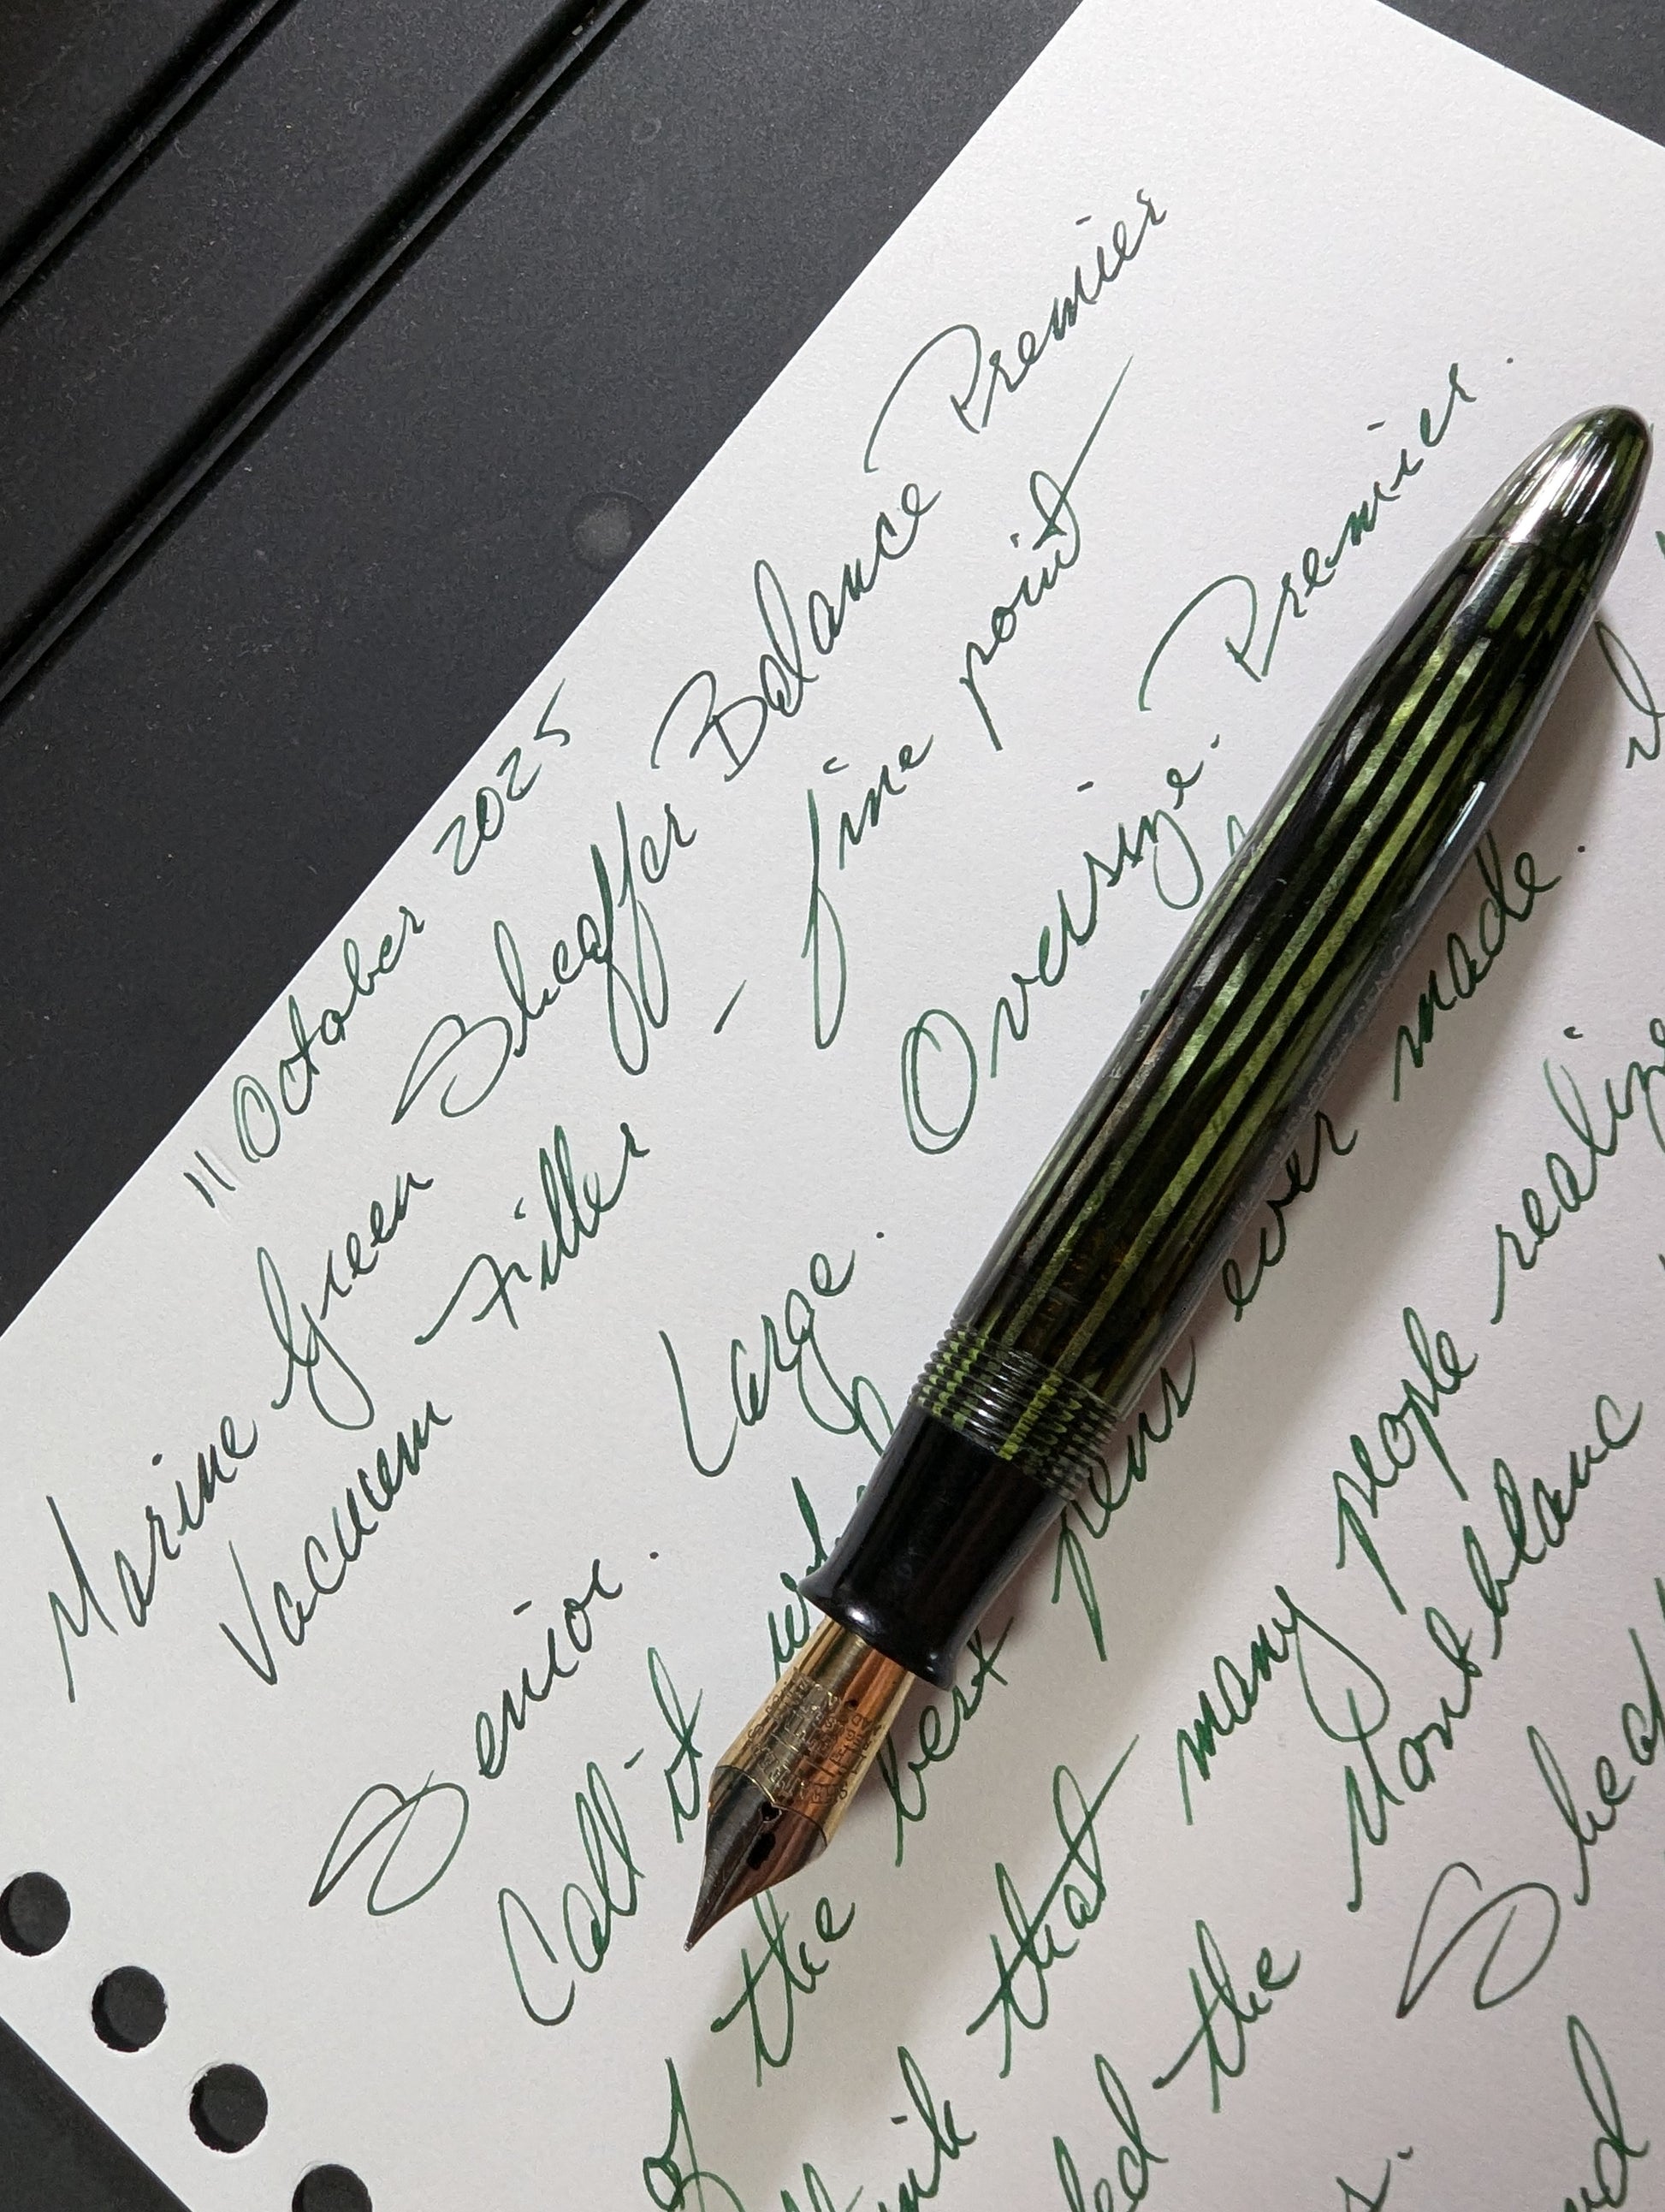 11 October 2025
Marine Green Sheaffer Balance Premier
Vacuum Filler – fine point
Senior. Large. Oversize. Premier.
Call it
of the best pens ever made.
think that many people realize
the Montblanc